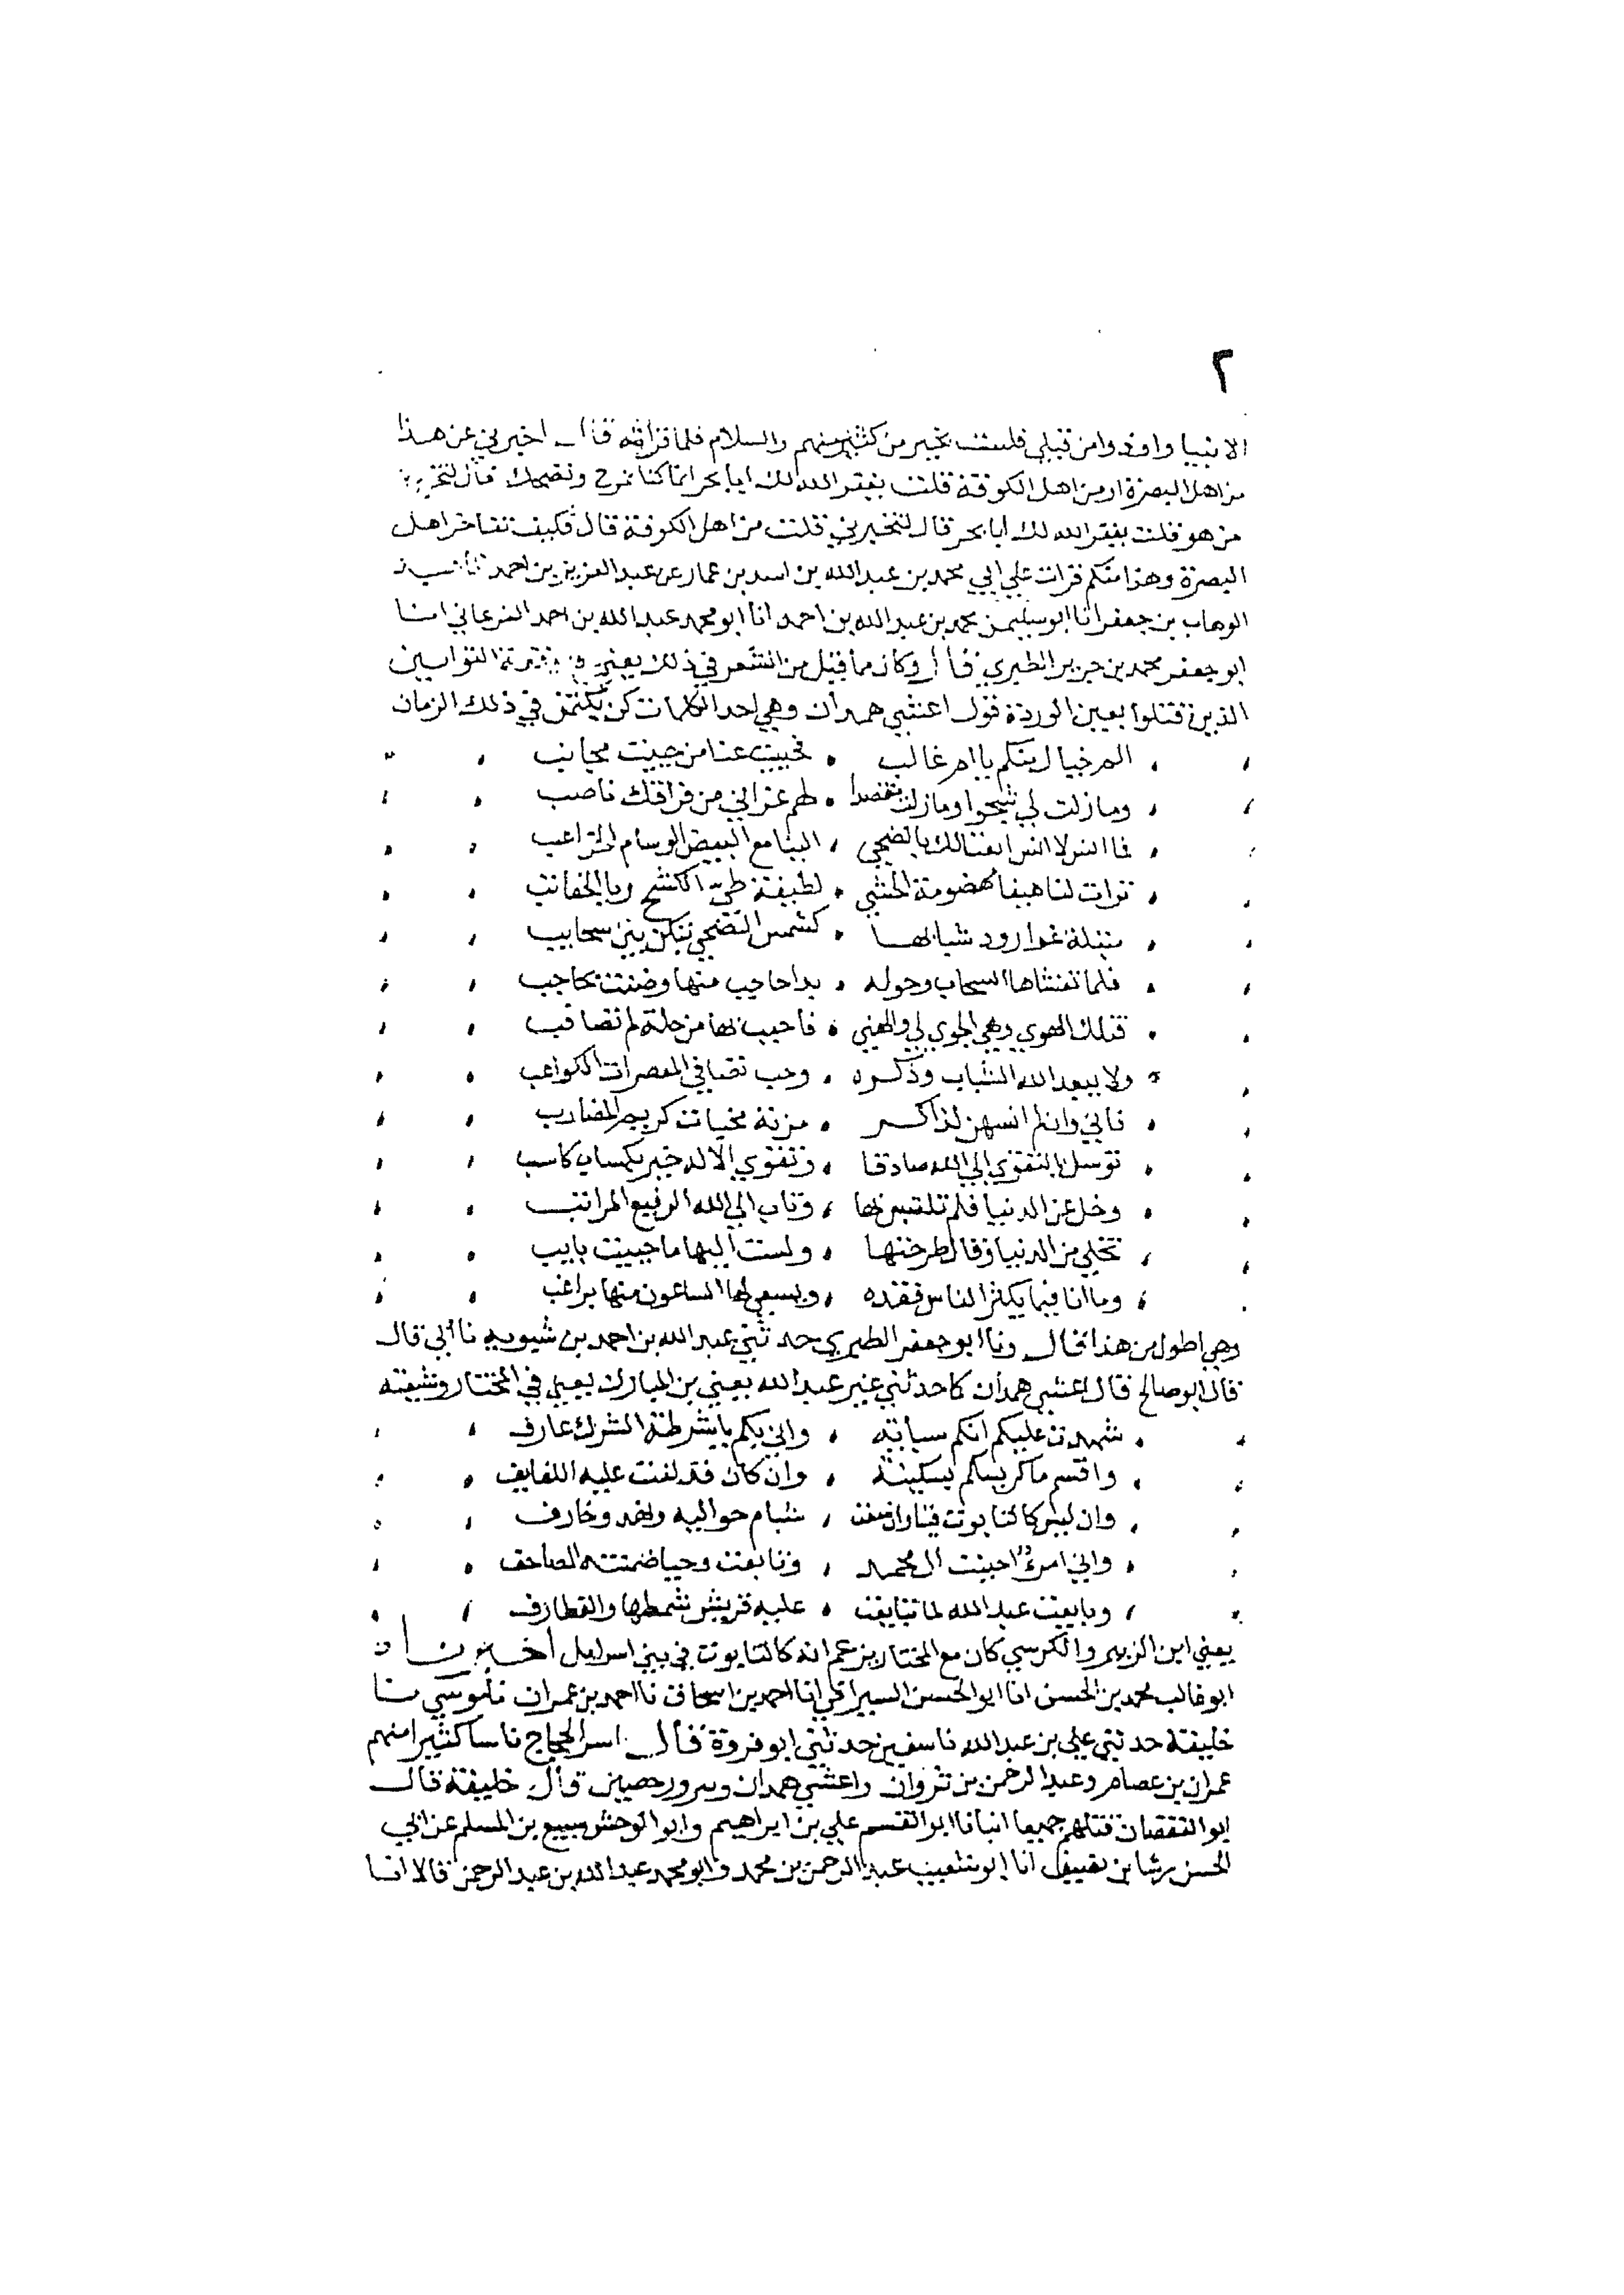 ٢
الانبيا واوذوا من قبلي فلست بخير من كثير منهم والسلام فلما قراته قال اخبرني عن هذا
من اهل البصرة ام من اهل الكوفة قلت يغفر الله لك ابا بحر انما كنا نمزح ونضحك قال لتخبرني
من هو قلت يغفر الله لك ابا بحر قال لتخبرني قلت من اهل الكوفة قال فكيف تفاخر اهل
البصرة وهذا منكم قرات علي ابي محمد بن عبد الله بن اسد بن عمار عن عبد العزيز بن احمد
الوهاب بن جعفر انا ابو سليمن محمد بن عبد الله بن احمد انا ابو محمد عبد الله بن احمد الفرغاني انا
ابو جعفر محمد بن جرير الطبري قال وكان مما قيل من الشعر في ذلك يعني التوابين
الذين قتلوا بعين الوردة قول اعشي همدان وهي احد المكتمات كن يكتمن في ذلك الزمان
الم خيال منكم يا ام غالب ، فحييت عنا من حبيت مجانب
وما زلت لي شجوا وما زلت مقصدا ، لهم عراني من فراقك ناصب
فما انس لا انس انفتالك بالضحي ، الينا مع البيض الوسام الخراعب
تراءت لنا هيفا مهضومة الحشي ، لطيفة طي الكشح ريا الحقائب
مبتلة غرا رود شبابها ، كشمس الضحي تنكل بين سحايب
فلما تغشاها السحاب وحوله ، بدا حاجب منها وضنت بحاجب
فتلك الهوي وهي الجوي لي والمني ، فاحبب بها من خلة لم تصاقب
ولا يبعد الله الشباب وذكره ، وحب تصافي المعصرات الكواعب
فاني وان لم انسهن لذاكر ، مزية مخبات كريم المضارب
توسل بالتقوي الي الله صادقا ، وتقوي الاله خير تكساب كاسب
وخلي عن الدنيا فلم تلتبس بها ، وتاب الي الله الرفيع المراتب
تخلي من الدنيا وقال طرحتها ، ولست اليها ما حييت بايب
وما انا فيما يكثر الناس فقده ، ويسعي لها الساعون منها براغب
وهي اطول من هذا قال ونا ابو جعفر الطبري حدثني عبد الله بن احمد بن شبويه نا ابي قال
قال ابو صالح قال اعشي همدان كما حدثني غير عبد الله يعني بن المبارك يعني في المختار وشيعته
شهدت عليكم انكم سبايية ، واني بكم يا شرطة الشرك عارف
واقسم ما كرسيكم بسكينة ، وان كان قد لفت عليه اللفايف
وان ليس كالتابوت فينا وان سعت ، شبام حواليه ونهد وخارف
واني امرؤ احببت ال محمد ، وتابعت وحيا ضمنته الصاحف
وبايعت عبد الله لما تتابعت ، عليه قريش شمطها والغطارف
يعني ابن الزبير والكرسي كان مع المختار يزعم انه كالتابوت في بني اسرايل اخبرنا
ابو غالب محمد بن الحسن انا ابو الحسن السيرافي انا احمد بن اسحاق نا احمد بن عمران نا موسي نا
خليفة حدثني علي بن عبد الله نا سفين حدثني ابو فروة قال اسر الحجاج ناسا كثيرا منهم
عمران بن عصام وعبد الرحمن بن ثروان واعشي همدان وبيرور حصين قال خليفة قال
ابو اليقظان فقتلهم جميعا انبانا ابو القسم علي بن ابراهيم وابو الوحش سبيع بن المسلم عن ابي
الحسن رشا بن نظيف انا ابو شعيب عبد الرحمن بن محمد وابو محمد عبد الله بن عبد الرحمن قالا انا